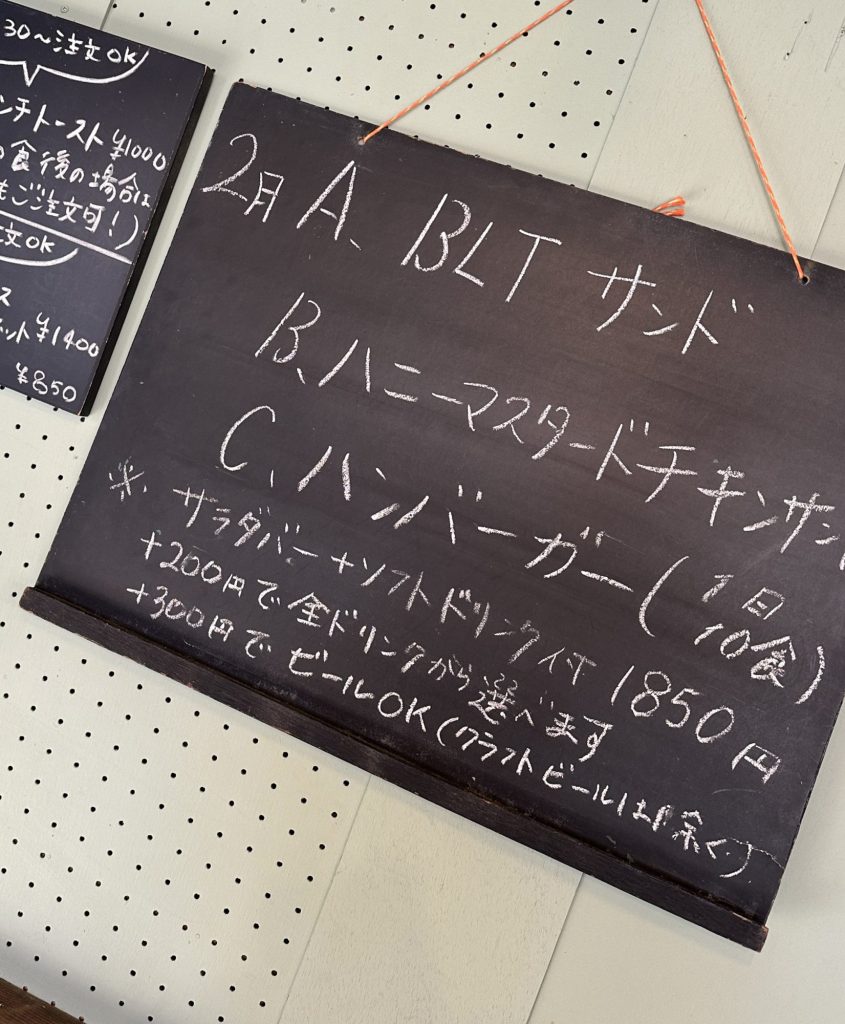 30〜注文OK
ンチトースト ¥1000
食後の場合は
ご注文可!)
文OK
ス
ット ¥1400
¥850
2月 A、BLT サンド
B、ハニーマスタードチキンサン
C、ハンバーガー(1日10食)
※、サラダバー+ソフトドリンク付 1850円
+200円で全ドリンクから選べます
+300円で ビールOK(クラフトビールは除く)